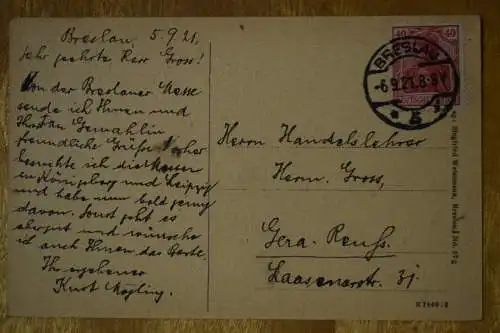 Breslau, 5.9.21.
Sehr geehrter Herr Gross!
Von der Breslauer Messe
sende ich Ihnen und
Ihrer Frau Gemahlin
freundliche Grüße. Vorher
besuchte ich die Messen
in Königsberg und Leipzig
und habe nun bald genug
davon. Sonst geht es
sehr gut und wünsche
ich auch Ihnen das Beste.
Ihr ergebener
Kurt
40 40
BRESLAU
-6.9.21.8-9V.
* 5
Herrn Handelslehrer
Herm. Gross,
Gera-Reuß.
Laasenerstr. 31.
Siegfried Weinmann, Breslau